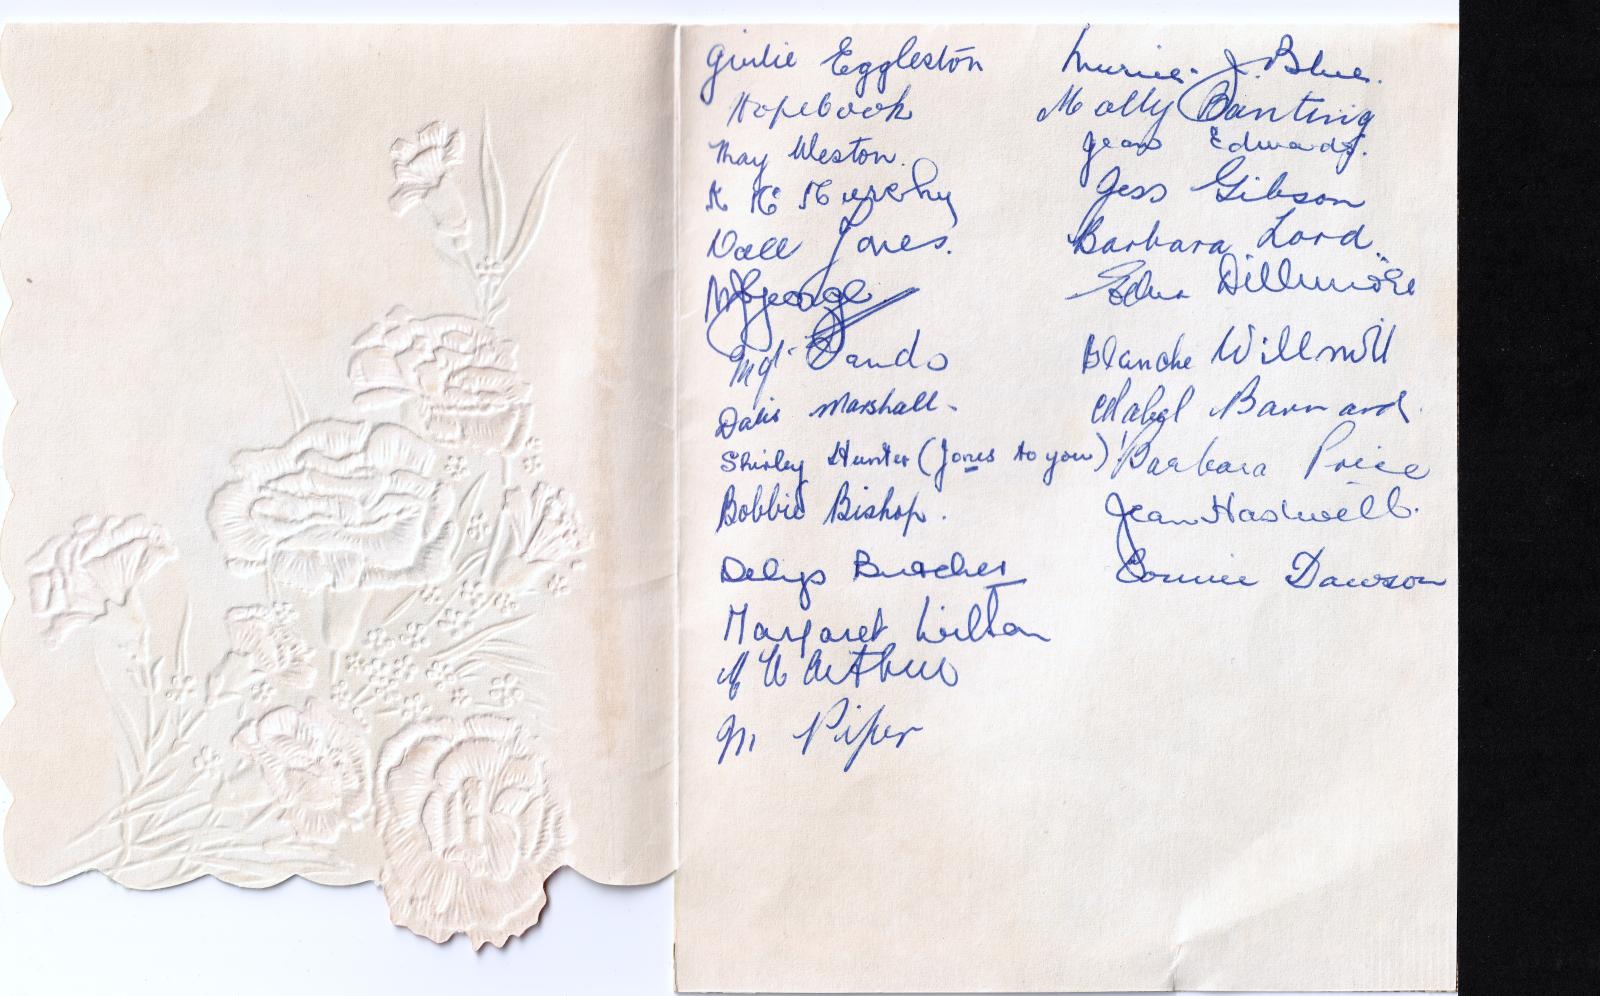 Girlie Eggleston
Hopebook
May Weston.
Jones.
George
Mgt. Sando
Doris Marshall.
Shirley Hunter (Jones to you)!
Bobbie Bishop.
Delys Butcher
Margaret Wilson
Arthur
M Piper
J. Blue.
Molly Banting
Jean Edwards.
Jess Gibson
Barbara Lord.
Edna Dillimore
Blanche Willmott
Mabel Barnard.
Barbara Price
Jean Haswell.
Connie Dawson